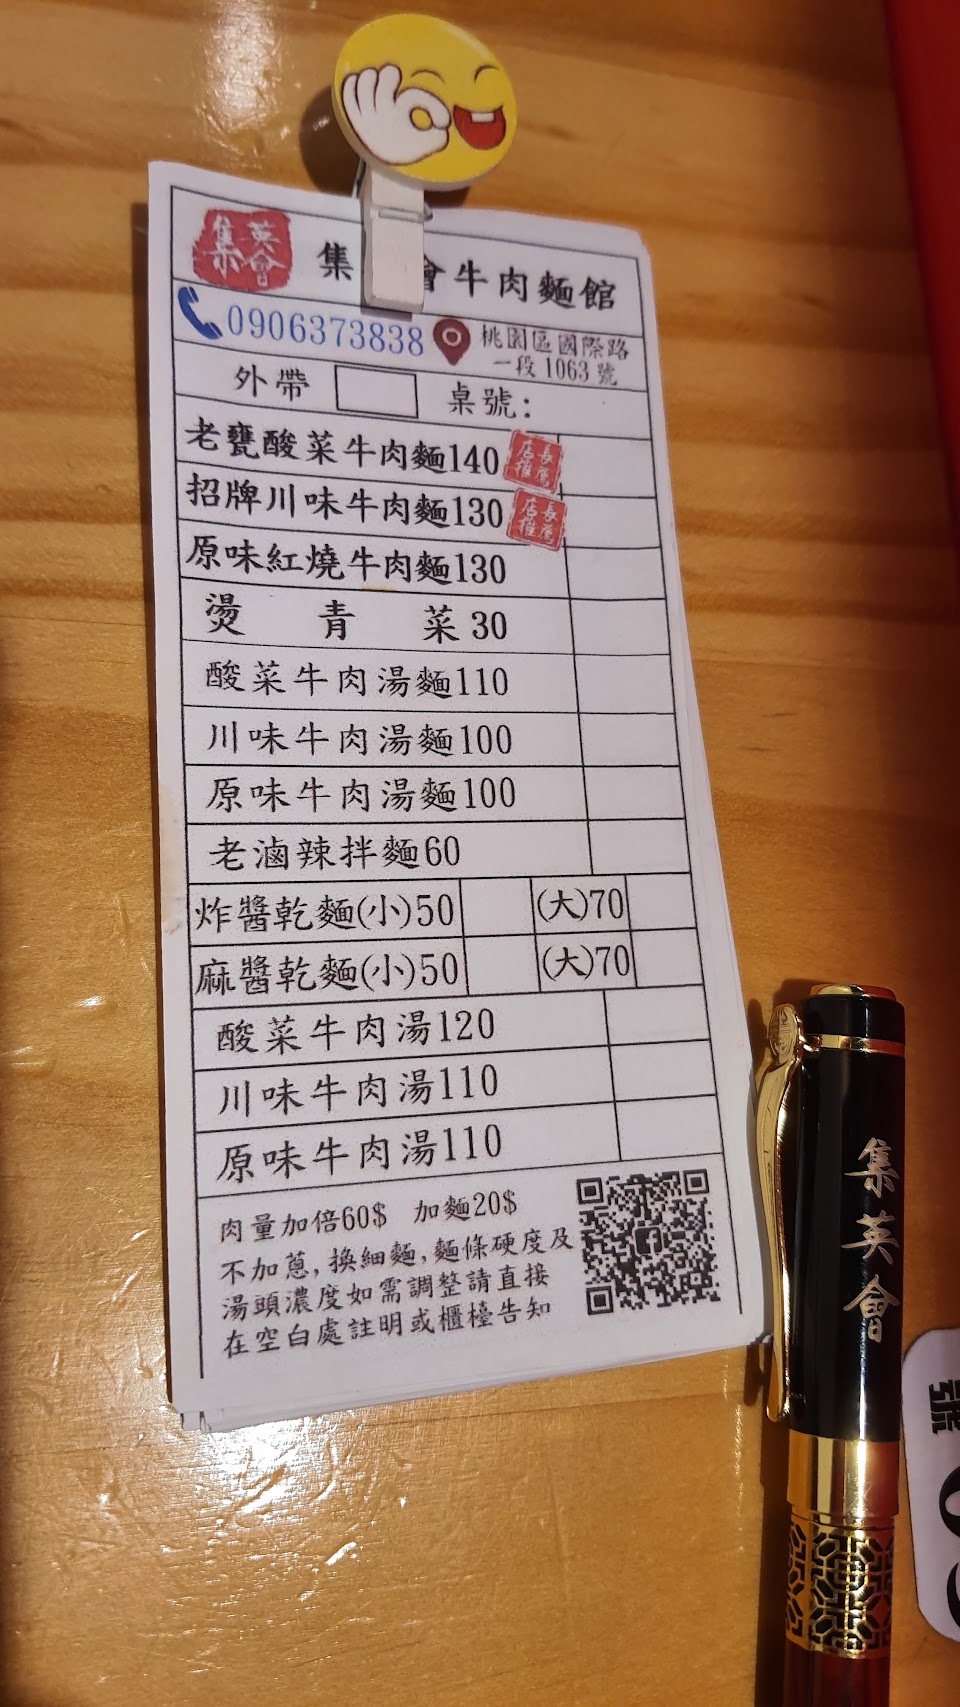 集英會
集 會牛肉麵館
0906373838
桃園區國際路
一段1063號
外帶 桌號:
老甕酸菜牛肉麵140 店長推薦
招牌川味牛肉麵130 店長推薦
原味紅燒牛肉麵130
燙青菜30
酸菜牛肉湯麵110
川味牛肉湯麵100
原味牛肉湯麵100
老滷辣拌麵60
炸醬乾麵(小)50 (大)70
麻醬乾麵(小)50 (大)70
酸菜牛肉湯120
川味牛肉湯110
原味牛肉湯110
肉量加倍60$ 加麵20$
不加蔥,換細麵,麵條硬度及
湯頭濃度如需調整請直接
在空白處註明或櫃檯告知
集英會